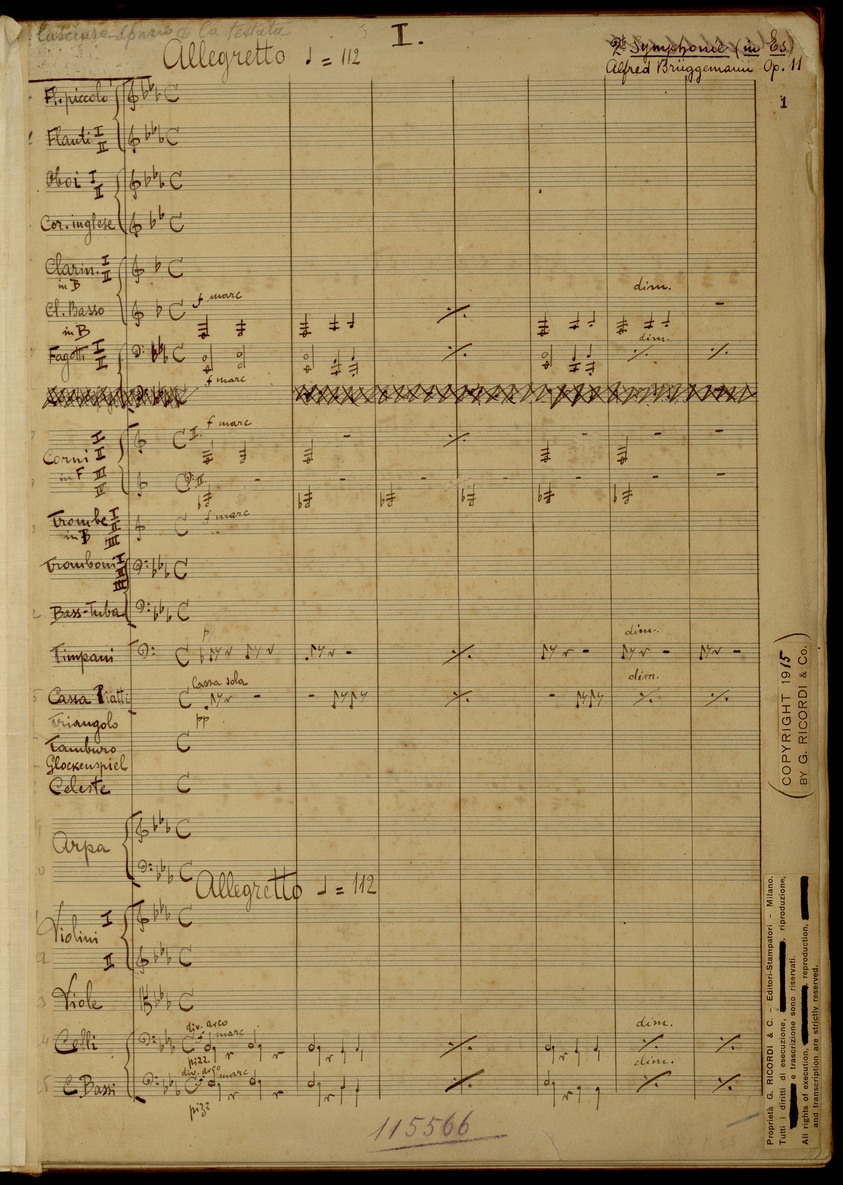 Lasciare spazio la testata
I.
Allegretto ♩ = 112
2te Symphonie (in Es)
Alfred Brüggemann Op. 11
1
Fl. piccolo
Flauti I
II
Oboi I
II
Cor. inglese
Clarin. I
II
in B
dim.
f marc
Cl. Basso
in B
dim.
Fagotti I
II
f marc
f marc
I.
Corni I
II
in F III
IV
Trombe I
II
in B III
f marc
Tromboni I
II
III
Bass-Tuba
p
dim.
Timpani
Cassa sola
dim.
Cassa Piatti
pp
Triangolo
Tamburo
Glockenspiel
Celeste
Arpa
Allegretto ♩ = 112
Violini I
II
Viole
div. arco
f marc
dim.
Celli
pizz.
div. arco
f marc
dim.
C. Bassi
pizz
115566
(COPYRIGHT 1915
BY G. RICORDI & Co.)
Proprietà G. RICORDI & C. - Editori-Stampatori - Milano.
Tutti i diritti di esecuzione, riproduzione,
e trascrizione sono riservati.
All rights of execution, reproduction,
and transcription are strictly reserved.